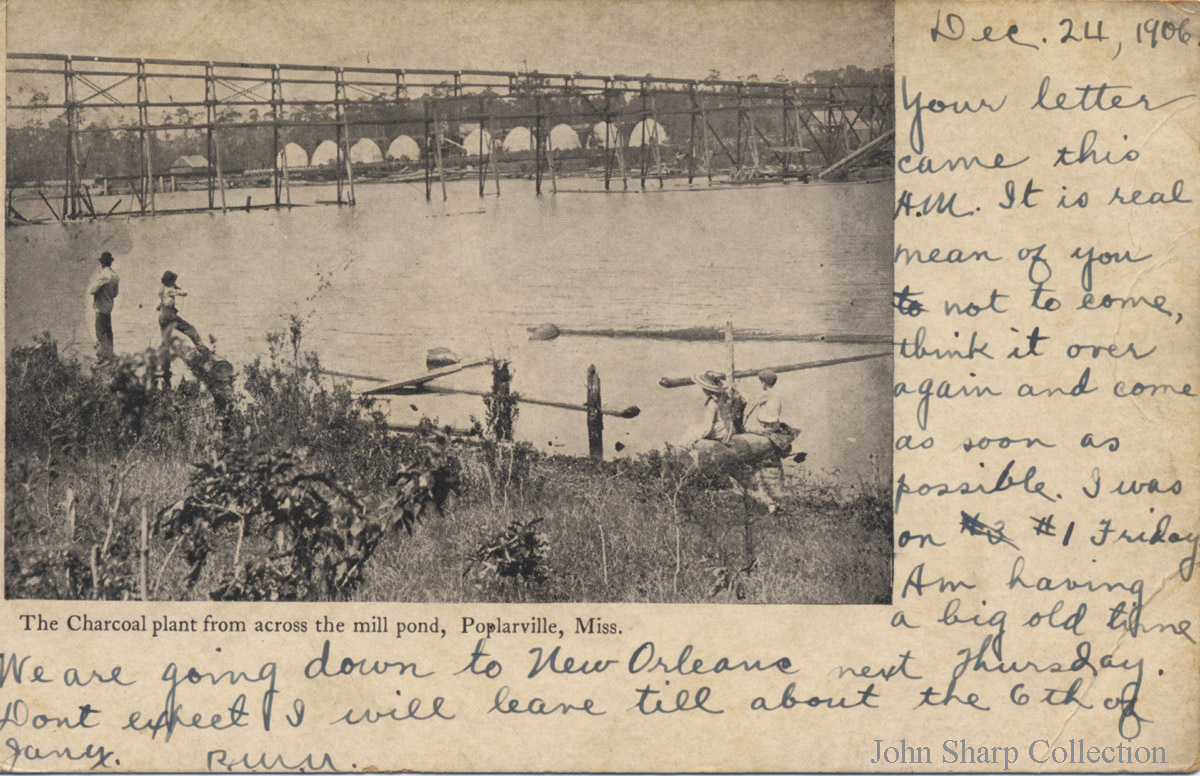 Dec. 24, 1906.
Your letter
came this
A.M. It is real
mean of you
to not to come,
think it over
again and come
as soon as
possible. I was
on #2 #1 Friday
Am having
a big old time
The Charcoal plant from across the mill pond, Poplarville, Miss.
We are going down to New Orleans next Thursday.
Dont expect I will leave till about the 6th of
Jany.
John Sharp Collection